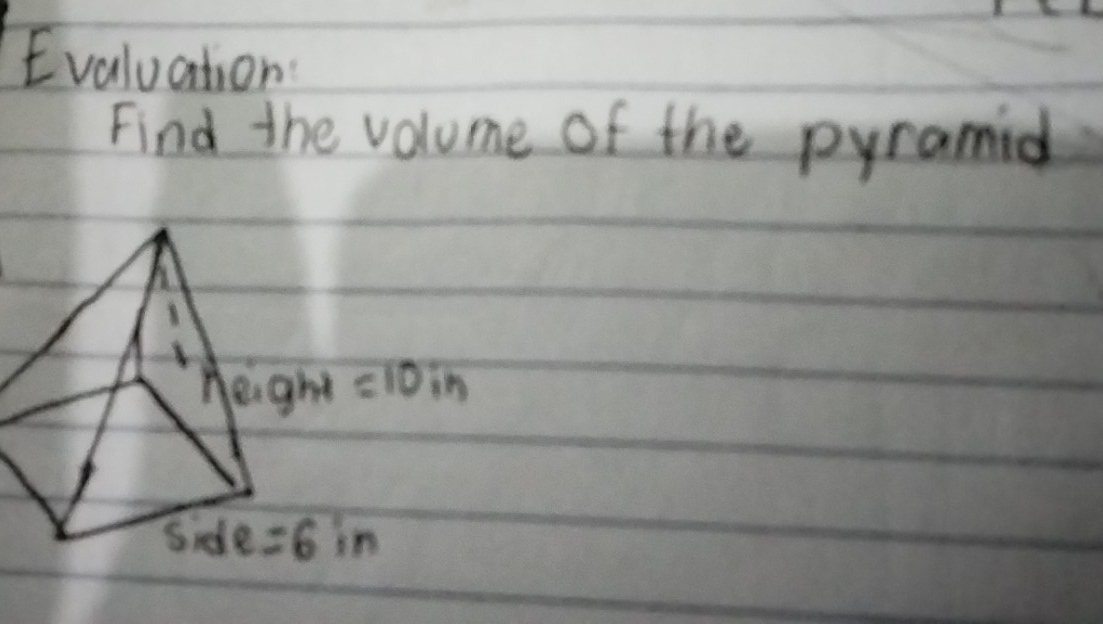 Evaluation:
Find the volume of the pyramid
height = 10 in
side = 6 in